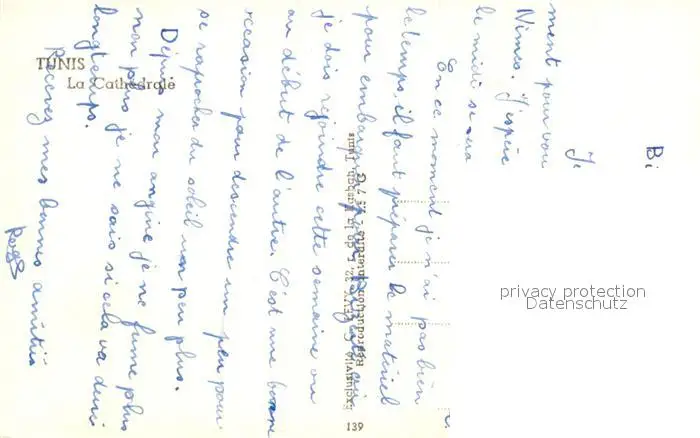 Bi
Je
ment pour vou
Nimes. J'espère
le midi sera
En ce moment je n'ai pas bien
le temps, il faut préparer le matériel
pour embarquer
je dois rejoindre cette semaine ou
au début de l'autre. C'est une bonne
occasion pour descendre un peu pour
se raprocher du soleil un peu plus.
Depuis mon angine je ne fume plus
non plus, je ne sais si cela va durer
longtemps.
Recevez mes bonnes amitiés
Roger
TUNIS
La Cathédrale
Exclusivité
Reproduction interdite
139
privacy protection
Datenschutz